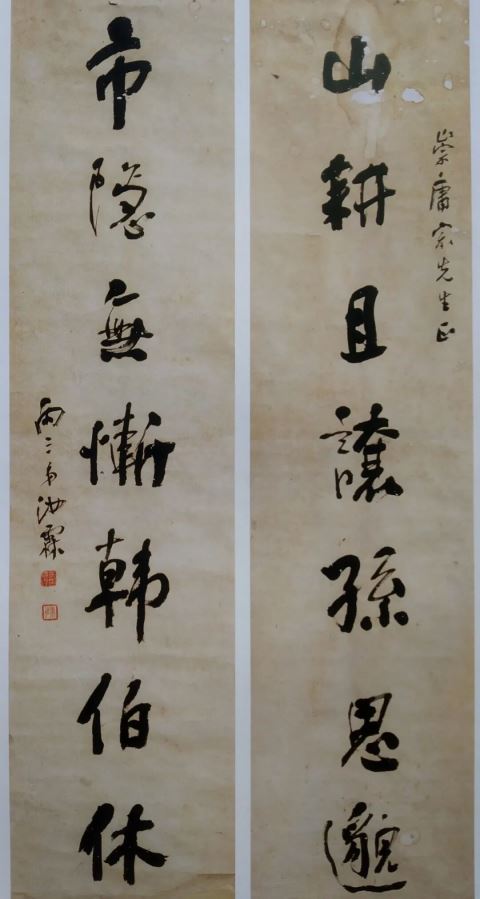 崇庸宗先生正
山耕且讓孫思邈
市隱無慚韓伯休
雨三弟霖